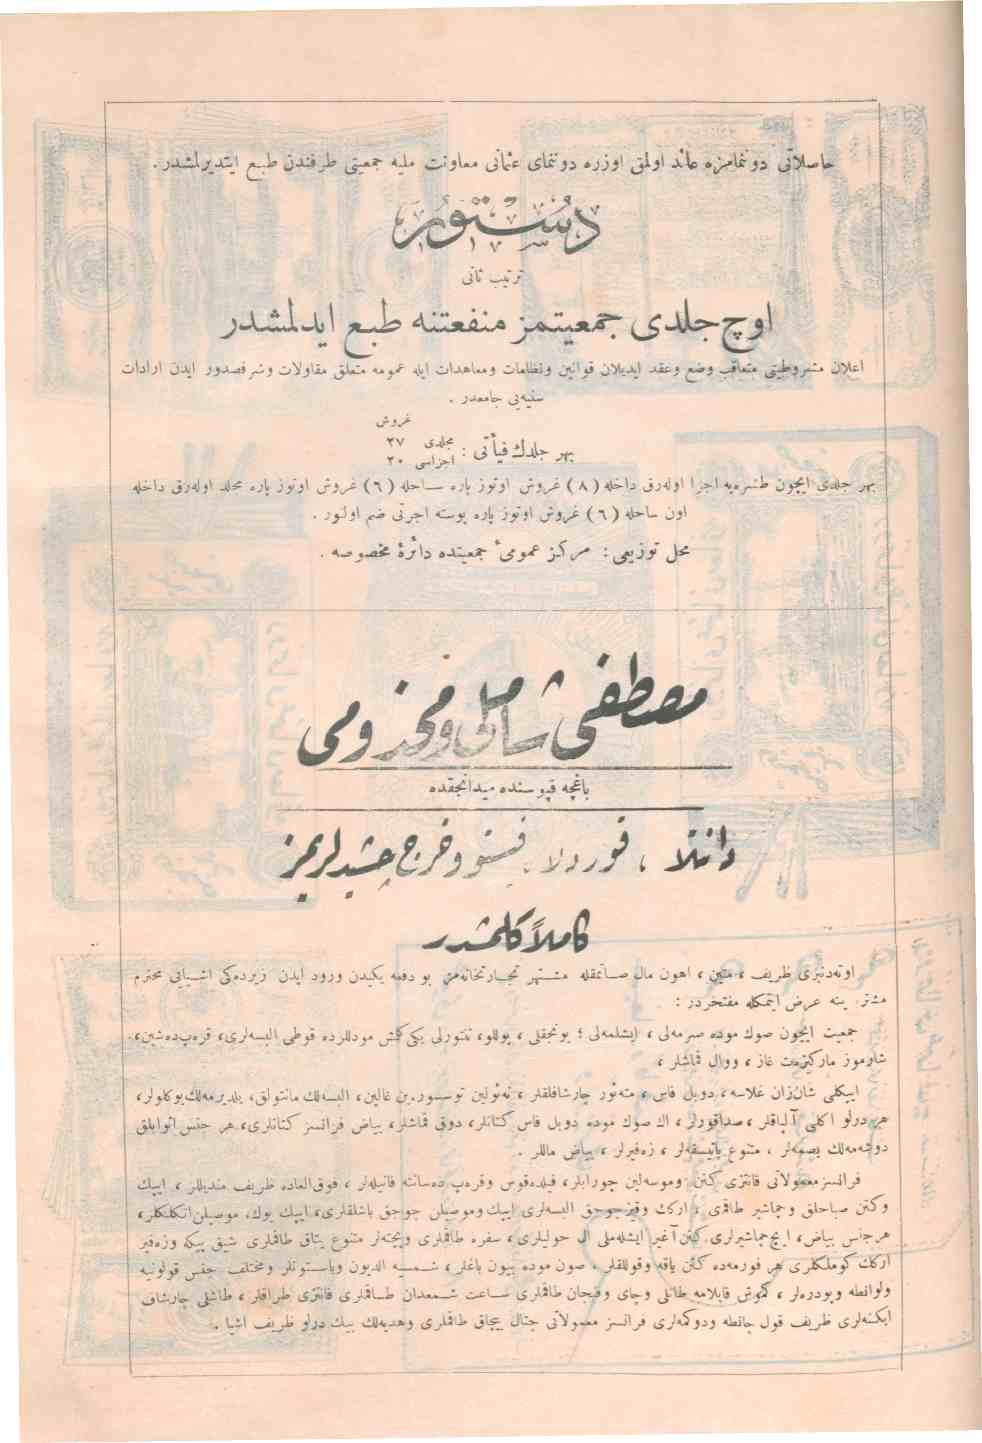 حاصلاتی دوننمامزه عائد اولمق اوزره دوننمای عثمانی معاونت ملیه جمعیتی طرفندن طبع ایتدیرلمشدر .
دستور
ترتیب ثانی
اوچ جلدی جمعیتمز منفعتنه طبع ایدلمشدر
اعلان مشروطیتی متعاقب وضع وعقد ایدیلان قوانین ونظامات ومعاهدات ایله عمومه متعلق مقاولات وشرفصدور ایدن ارادات
سنیه‌یی جامعدر .
غروش
بهر جلدك فیأتی : مجلدی ٢٧
اجزاسی ٢٠
بهر جلدی ایچون طشره‌یه اجزا اوله‌رق داخله ( ٨ ) غروش اوتوز پاره ساحله ( ٦ ) غروش اوتوز پاره مجلد اوله‌رق داخله
اون ساحله ( ٦ ) غروش اوتوز پاره پوسته اجرتی ضم اولنور .
محل توزیعی : مركز عمومیٔ جمعیتده دائرهٔ مخصوصه .
مصطفی شاملی ومخدومی
باغچه قپوسنده میدانجقده
دانتلا ، قوردلا ، فیستو وخرج چشیدلریمز
كاملاً كلمشدر
اوته‌دنبری ظریف ، متین ، اهون مال صاتمقله مشتهر تجارتخانه‌مز بو دفعه یكیدن ورود ایدن زیرده‌كی اشیایی محترم
مشتریلرینه عرض ایتمكله مفتخردر :
جمعیت ایچون صوك موده صرمه‌لی ، ایشلمه‌لی ؛ بونجقلی ، پوللو ، یكی كلمش مودللرده قوطی البسه‌لری ، قره‌پ‌ده‌شین ،
شارموز ماركیزت غاز ، ووال قماشلر ،
ایپكلی شان‌ژان غلاسه ، دوبل فاس ، چارشافلقلر ، البسه‌لك مانتولق ، یلدیرمه‌لك یوكلولر ،
هر درلو آلپاقلر ، صداقورلر ، اك صوك موده دوبل فاس كتانلر ، دوق قماشلر ، بیاض فرانسز كتانلری ، هر جنس اثوابلق
دوشه‌مه‌لك بصمه‌لر ، متنوع پاتیسقه‌لر ، زه‌فیرلر ، بیاض ماللر .
فرانسز معمولاتی فانتزی كتن وموسه‌لین چورابلر ، فیلده‌قوس وقره‌پ ده‌سانته فانیله‌لر ، فوق‌العاده ظریف مندیللر ، ایپك
وكتن صباحلق وچماشیر طاقمی ، اركك وقیز چوجق البسه‌لری ایپك وموصیلن چوجق باشلقلری ، ایپك یوك،
هر جنس بیاض ، ایچ چماشیرلری كتن آغیر ایشله‌ملی ال حولیلری ، سفره طاقملری وپچته‌لر متنوع یتاق طاقملری شیق پیكه وزه‌فیر
اركك كوملكلری هر فورمه‌ده كتن یاقه وقوللقلر ، صون موده بیون باغلر ، شمسیه وباستونلر ومختلف جنس قولونیه
ولوانطه وپودره‌لر ، كموش قابلامه طاتلی وچای وفنجان طاقملری ساعت شمعدان طاقملری فانتزی طراقلر ، چارشاف
ایكنه‌لری ظریف قول چانطه ودوكمه‌لری فرانسز معمولاتی چتال بیچاق طاقملری وهدیه‌لك بیك درلو ظریف اشیا .